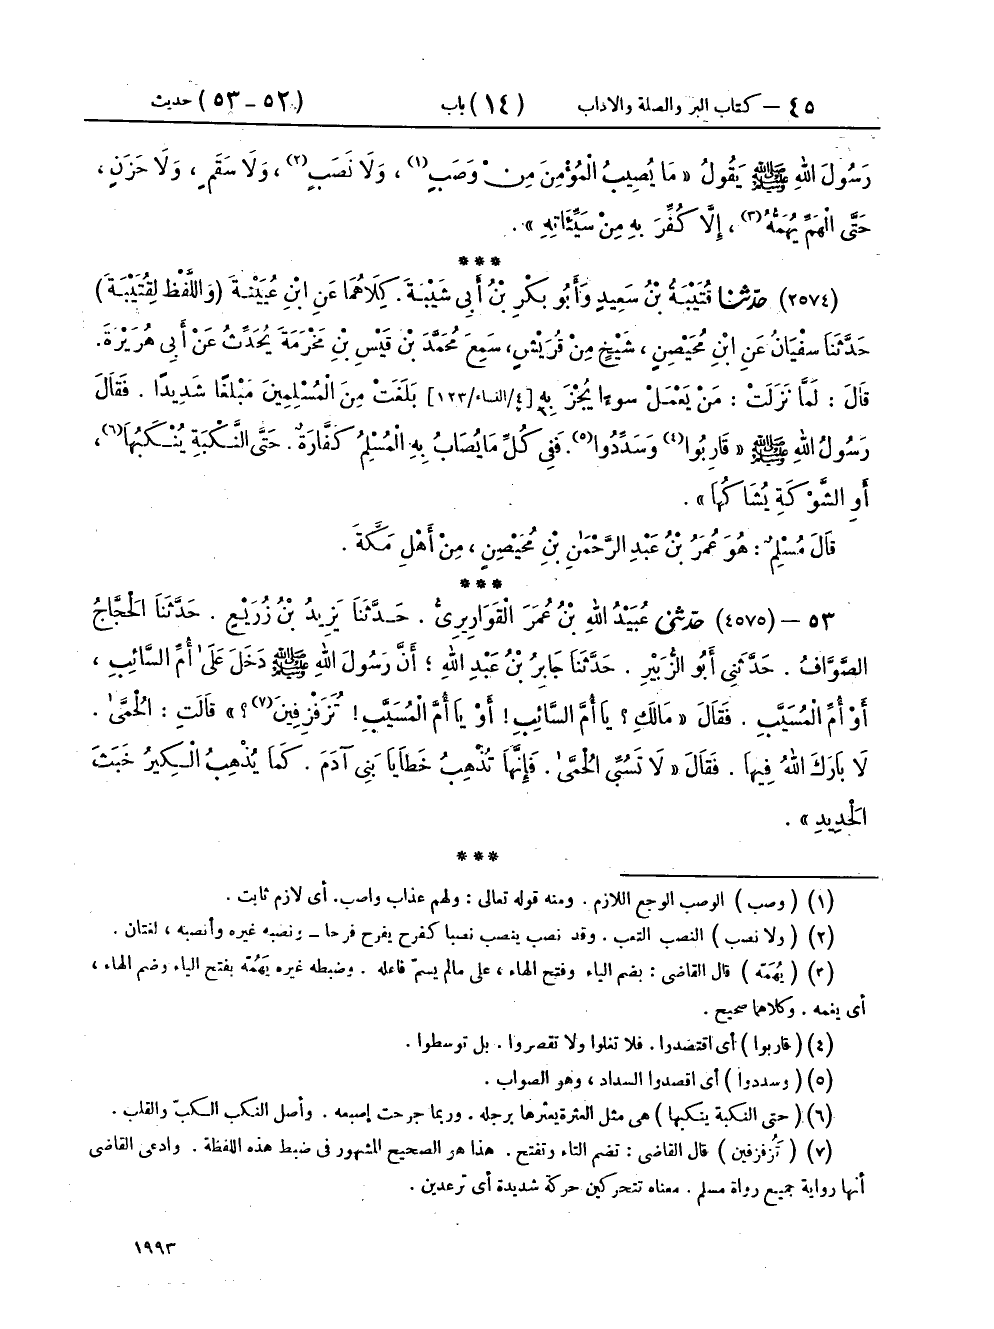 ٤٥ – كتاب البر والصلة والآداب (١٤) باب (٥٢ – ٥٣) حديث
رَسُولَ اللهِ ﷺ يَقُولُ « مَا يُصِيبُ الْمُؤْمِنَ مِنْ وَصَبٍ(١) ، وَلَا نَصَبٍ(٢) ، وَلَا سَقَمٍ ، وَلَا حَزَنٍ ،
حَتَّى الْهَمِّ يُهَمُّهُ(٣) ، إِلَّا كُفِّرَ بِهِ مِنْ سَيِّئَاتِهِ » .
***
(٢٥٧٤) حدثنا قُتَيْبَةُ بْنُ سَعِيدٍ وَأَبُو بَكْرِ بْنُ أَبِي شَيْبَةَ . كِلَاهُمَا عَنِ ابْنِ عُيَيْنَةَ (وَاللَّفْظُ لِقُتَيْبَةَ)
حَدَّثَنَا سُفْيَانُ عَنِ ابْنِ مُحَيْصِنٍ ، شَيْخٍ مِنْ قُرَيْشٍ ، سَمِعَ مُحَمَّدَ بْنَ قَيْسِ بْنِ مَخْرَمَةَ يُحَدِّثُ عَنْ أَبِي هُرَيْرَةَ .
قَالَ : لَمَّا نَزَلَتْ : مَنْ يَعْمَلْ سُوءًا يُجْزَ بِهِ [٤/النساء/١٢٣] بَلَغَتْ مِنَ الْمُسْلِمِينَ مَبْلَغًا شَدِيدًا . فَقَالَ
رَسُولُ اللهِ ﷺ « قَارِبُوا(٤) وَسَدِّدُوا(٥) . فَفِي كُلِّ مَا يُصَابُ بِهِ الْمُسْلِمُ كَفَّارَةٌ . حَتَّى النَّكْبَةِ يُنْكَبُهَا(٦) ،
أَوِ الشَّوْكَةِ يُشَاكُهَا » .
قَالَ مُسْلِمٌ : هُوَ عُمَرُ بْنُ عَبْدِ الرَّحْمَٰنِ بْنِ مُحَيْصِنٍ ، مِنْ أَهْلِ مَكَّةَ .
***
٥٣ – (٤٥٧٥) حدثني عُبَيْدُ اللهِ بْنُ عُمَرَ الْقَوَارِيرِيُّ . حَدَّثَنَا يَزِيدُ بْنُ زُرَيْعٍ . حَدَّثَنَا الْحَجَّاجُ
الصَّوَّافُ . حَدَّثَنِي أَبُو الزُّبَيْرِ . حَدَّثَنَا جَابِرُ بْنُ عَبْدِ اللهِ ؛ أَنَّ رَسُولَ اللهِ ﷺ دَخَلَ عَلَىٰ أُمِّ السَّائِبِ ،
أَوْ أُمِّ الْمُسَيَّبِ . فَقَالَ « مَالَكِ ؟ يَا أُمَّ السَّائِبِ ! أَوْ يَا أُمَّ الْمُسَيَّبِ ! تُزَفْزِفِينَ(٧) ؟ » قَالَتِ : الْحُمَّىٰ .
لَا بَارَكَ اللهُ فِيهَا . فَقَالَ « لَا تَسُبِّي الْحُمَّىٰ . فَإِنَّهَا تُذْهِبُ خَطَايَا بَنِي آدَمَ . كَمَا يُذْهِبُ الْكِيرُ خَبَثَ
الْحَدِيدِ » .
***
(١) ( وصب ) الوصب الوجع اللازم . ومنه قوله تعالى : ولهم عذاب واصب. أى لازم ثابت .
(٢) ( ولا نصب ) النصب التعب . وقد نصب ينصب نصبا كفرح يفرح فرحا – ونصبه غيره وأنصبه ، لغتان .
(٣) ( يُهَمّه ) قال القاضى : بضم الياء وفتح الهاء ، على مالم يسمّ فاعله . وضبطه غيره يَهُمّه بفتح الياء وضم الهاء ،
أى يغمه . وكلاهما صحيح .
(٤) ( قاربوا ) أى اقتصدوا . فلا تغلوا ولا تقصروا . بل توسطوا .
(٥) ( وسددوا ) أى اقصدوا السداد ، وهو الصواب .
(٦) ( حتى النكبة ينكبها ) هى مثل العثرة يعثرها برجله . وربما جرحت إصبعه . وأصل النكب الكبّ والقلب .
(٧) ( تُزفزفين ) قال القاضى : تضم التاء وتفتح . هذا هو الصحيح المشهور فى ضبط هذه اللفظة . وادعى القاضى
أنها رواية جميع رواة مسلم . معناه تتحركين حركة شديدة أى ترعدين .
١٩٩٣